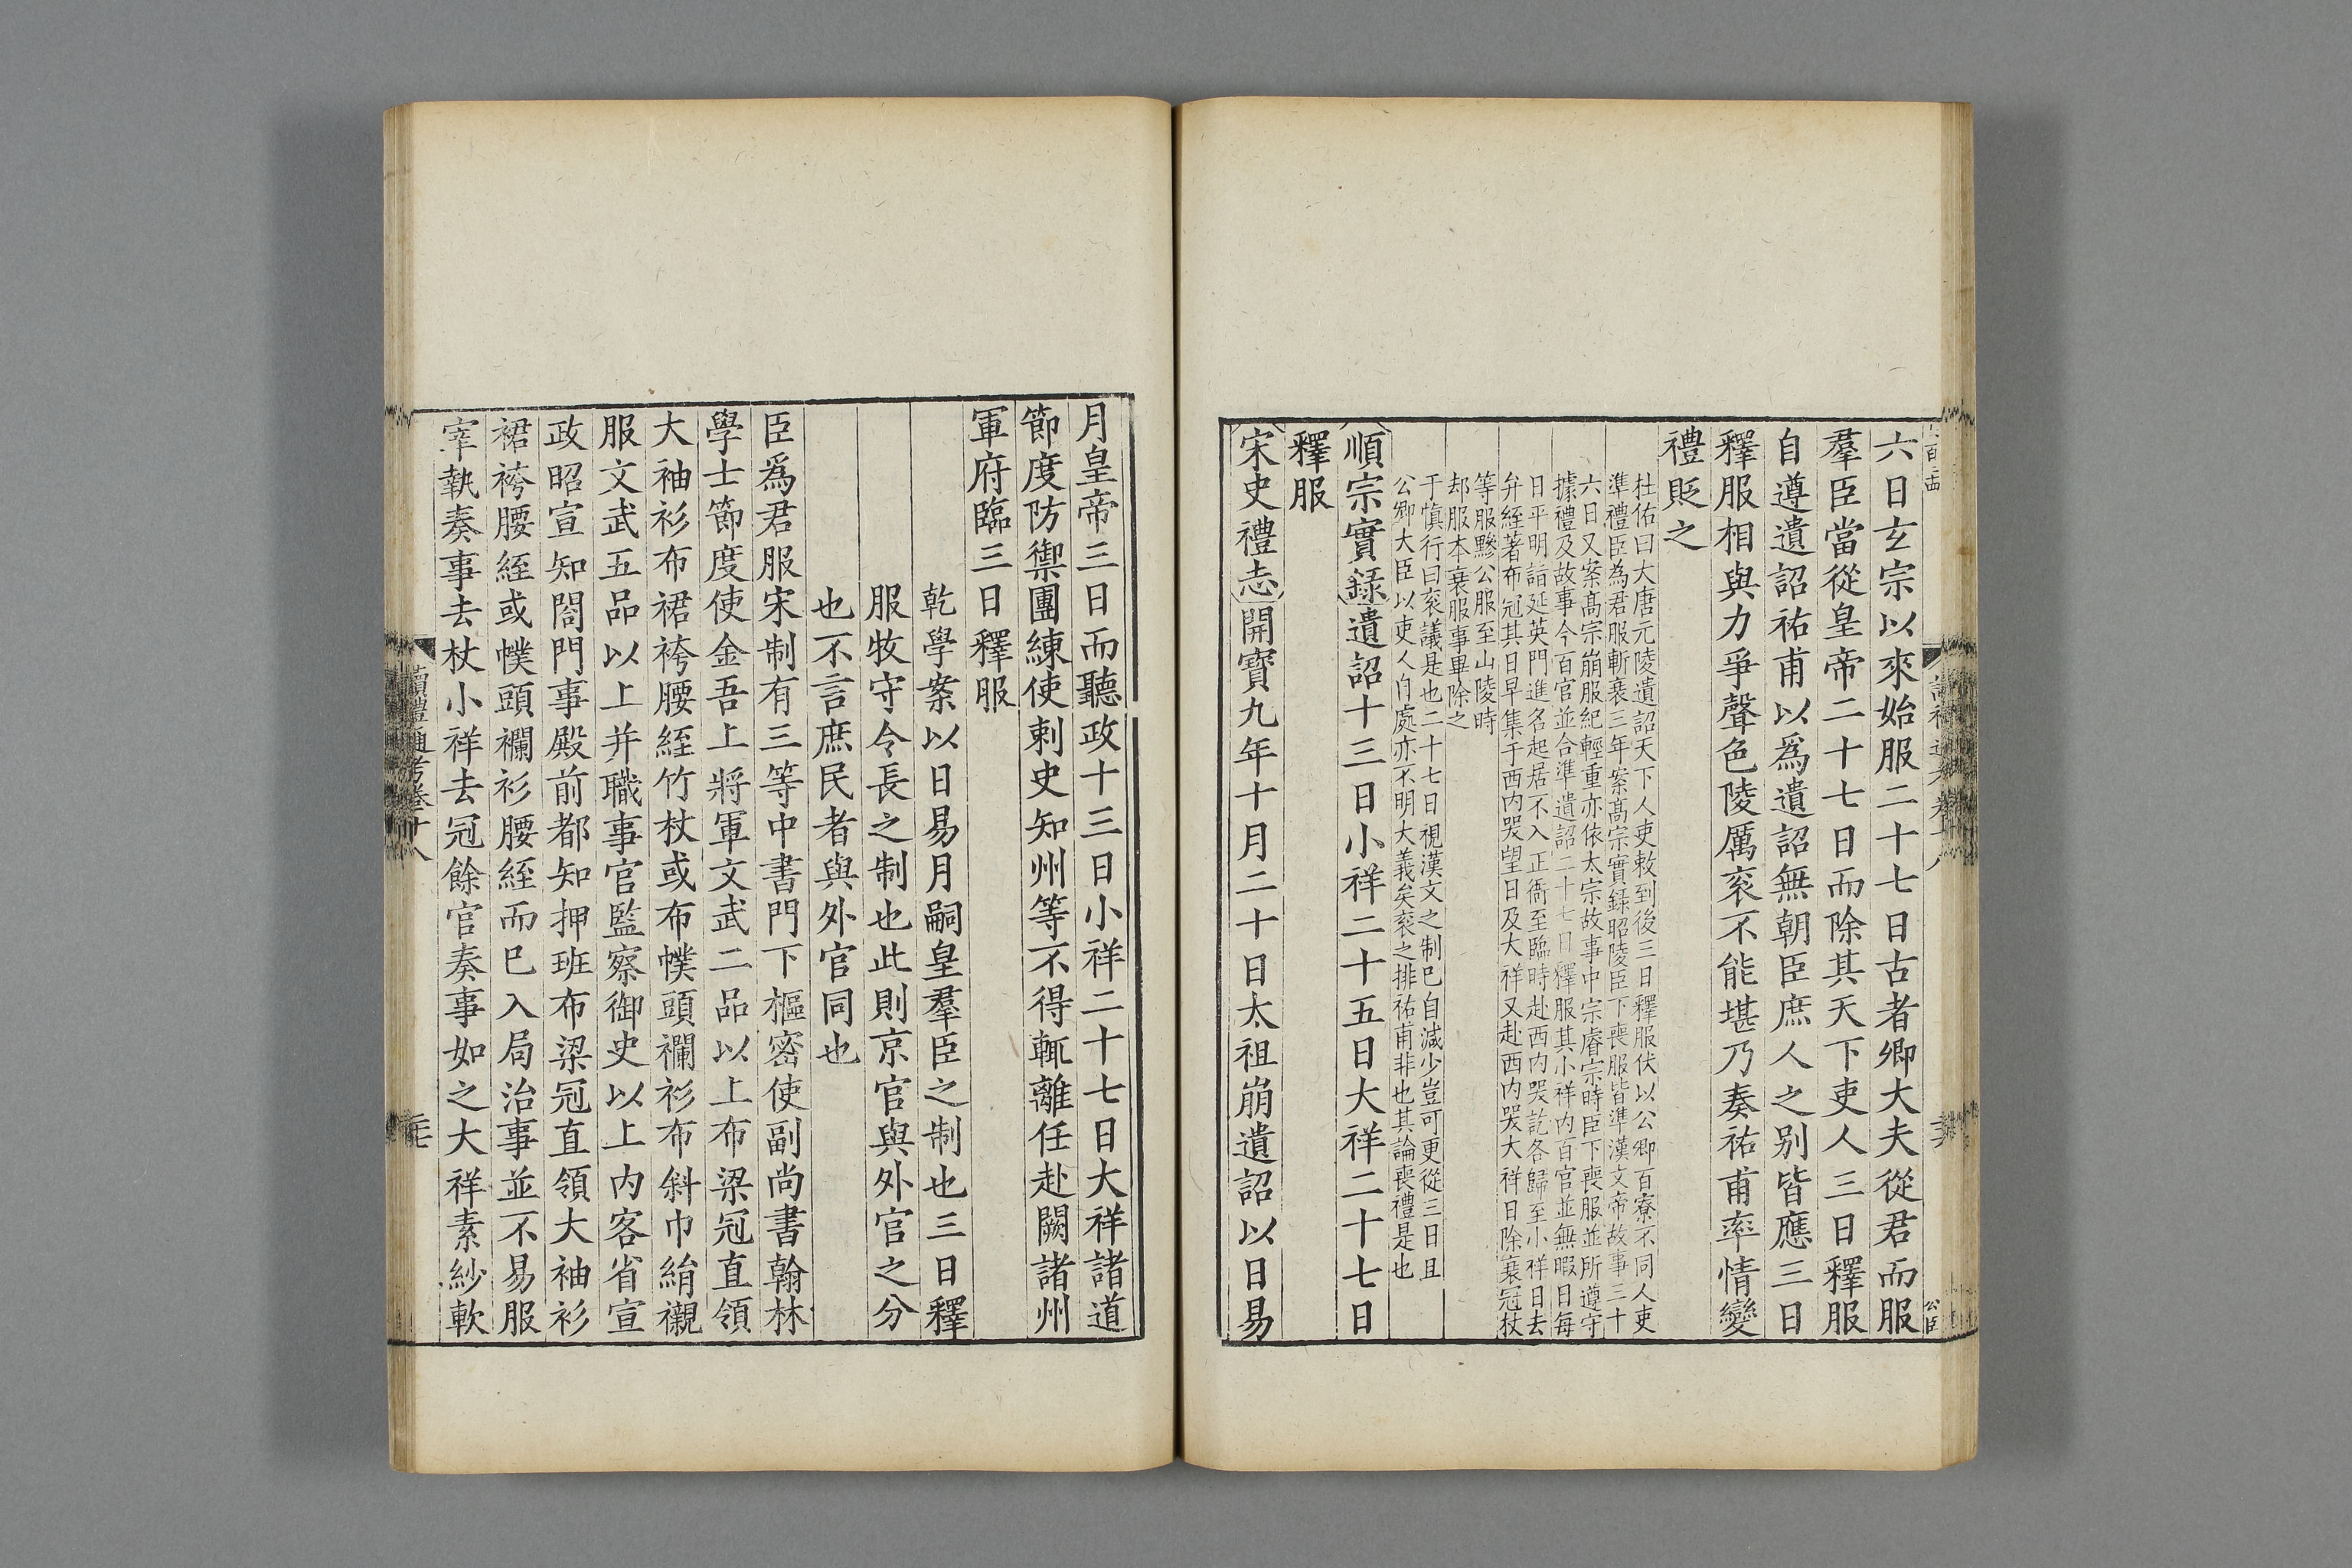 六日玄宗以來始服二十七日古者卿大夫從君而服
羣臣當從皇帝二十七日而除其天下吏人三日釋服
自遵遺詔祐甫以爲遺詔無朝臣庶人之别皆應三日
釋服相與力爭聲色陵厲衮不能堪乃奏祐甫率情變
禮貶之
杜佑曰大唐元陵遺詔天下人吏敕到後三日釋服伏以公卿百寮不同人吏
準禮臣為君服斬衰三年案髙宗實錄昭陵臣下喪服皆準漢文帝故事三十
六日又案髙宗崩服紀輕重亦依太宗故事中宗睿宗時臣下喪服並所遵守
據禮及故事今百官並合準遺詔二十七日釋服其小祥内百官並無暇日每
日平明詣延英門進名起居不入正衙至臨時赴西内哭訖各歸至小祥日去
弁絰著布冠其日早集于西内哭望日及大祥又赴西内哭大祥日除衰冠杖
等服黲公服至山陵時
却服本衰服事畢除之
于慎行曰衮議是也二十七日視漢文之制已自減少豈可更從三日且
公卿大臣以吏人自處亦不明大義矣衮之排祐甫非也其論喪禮是也
順宗實錄遺詔十三日小祥二十五日大祥二十七日
釋服
宋史禮志開寳九年十月二十日太祖崩遺詔以日易
月皇帝三日而聽政十三日小祥二十七日大祥諸道
節度防禦團練使刺史知州等不得輒離任赴闕諸州
軍府臨三日釋服
乾學案以日易月嗣皇羣臣之制也三日釋
服牧守令長之制也此則京官與外官之分
也不言庶民者與外官同也
臣爲君服宋制有三等中書門下樞密使副尚書翰林
學士節度使金吾上將軍文武二品以上布梁冠直領
大袖衫布裙袴腰絰竹杖或布幞頭襴衫布斜巾絹襯
服文武五品以上并職事官監察御史以上内客省宣
政昭宣知閤門事殿前都知押班布梁冠直領大袖衫
裙袴腰絰或幞頭襴衫腰絰而已入局治事並不易服
宰執奏事去杖小祥去冠餘官奏事如之大祥素紗軟
讀禮通考卷十八